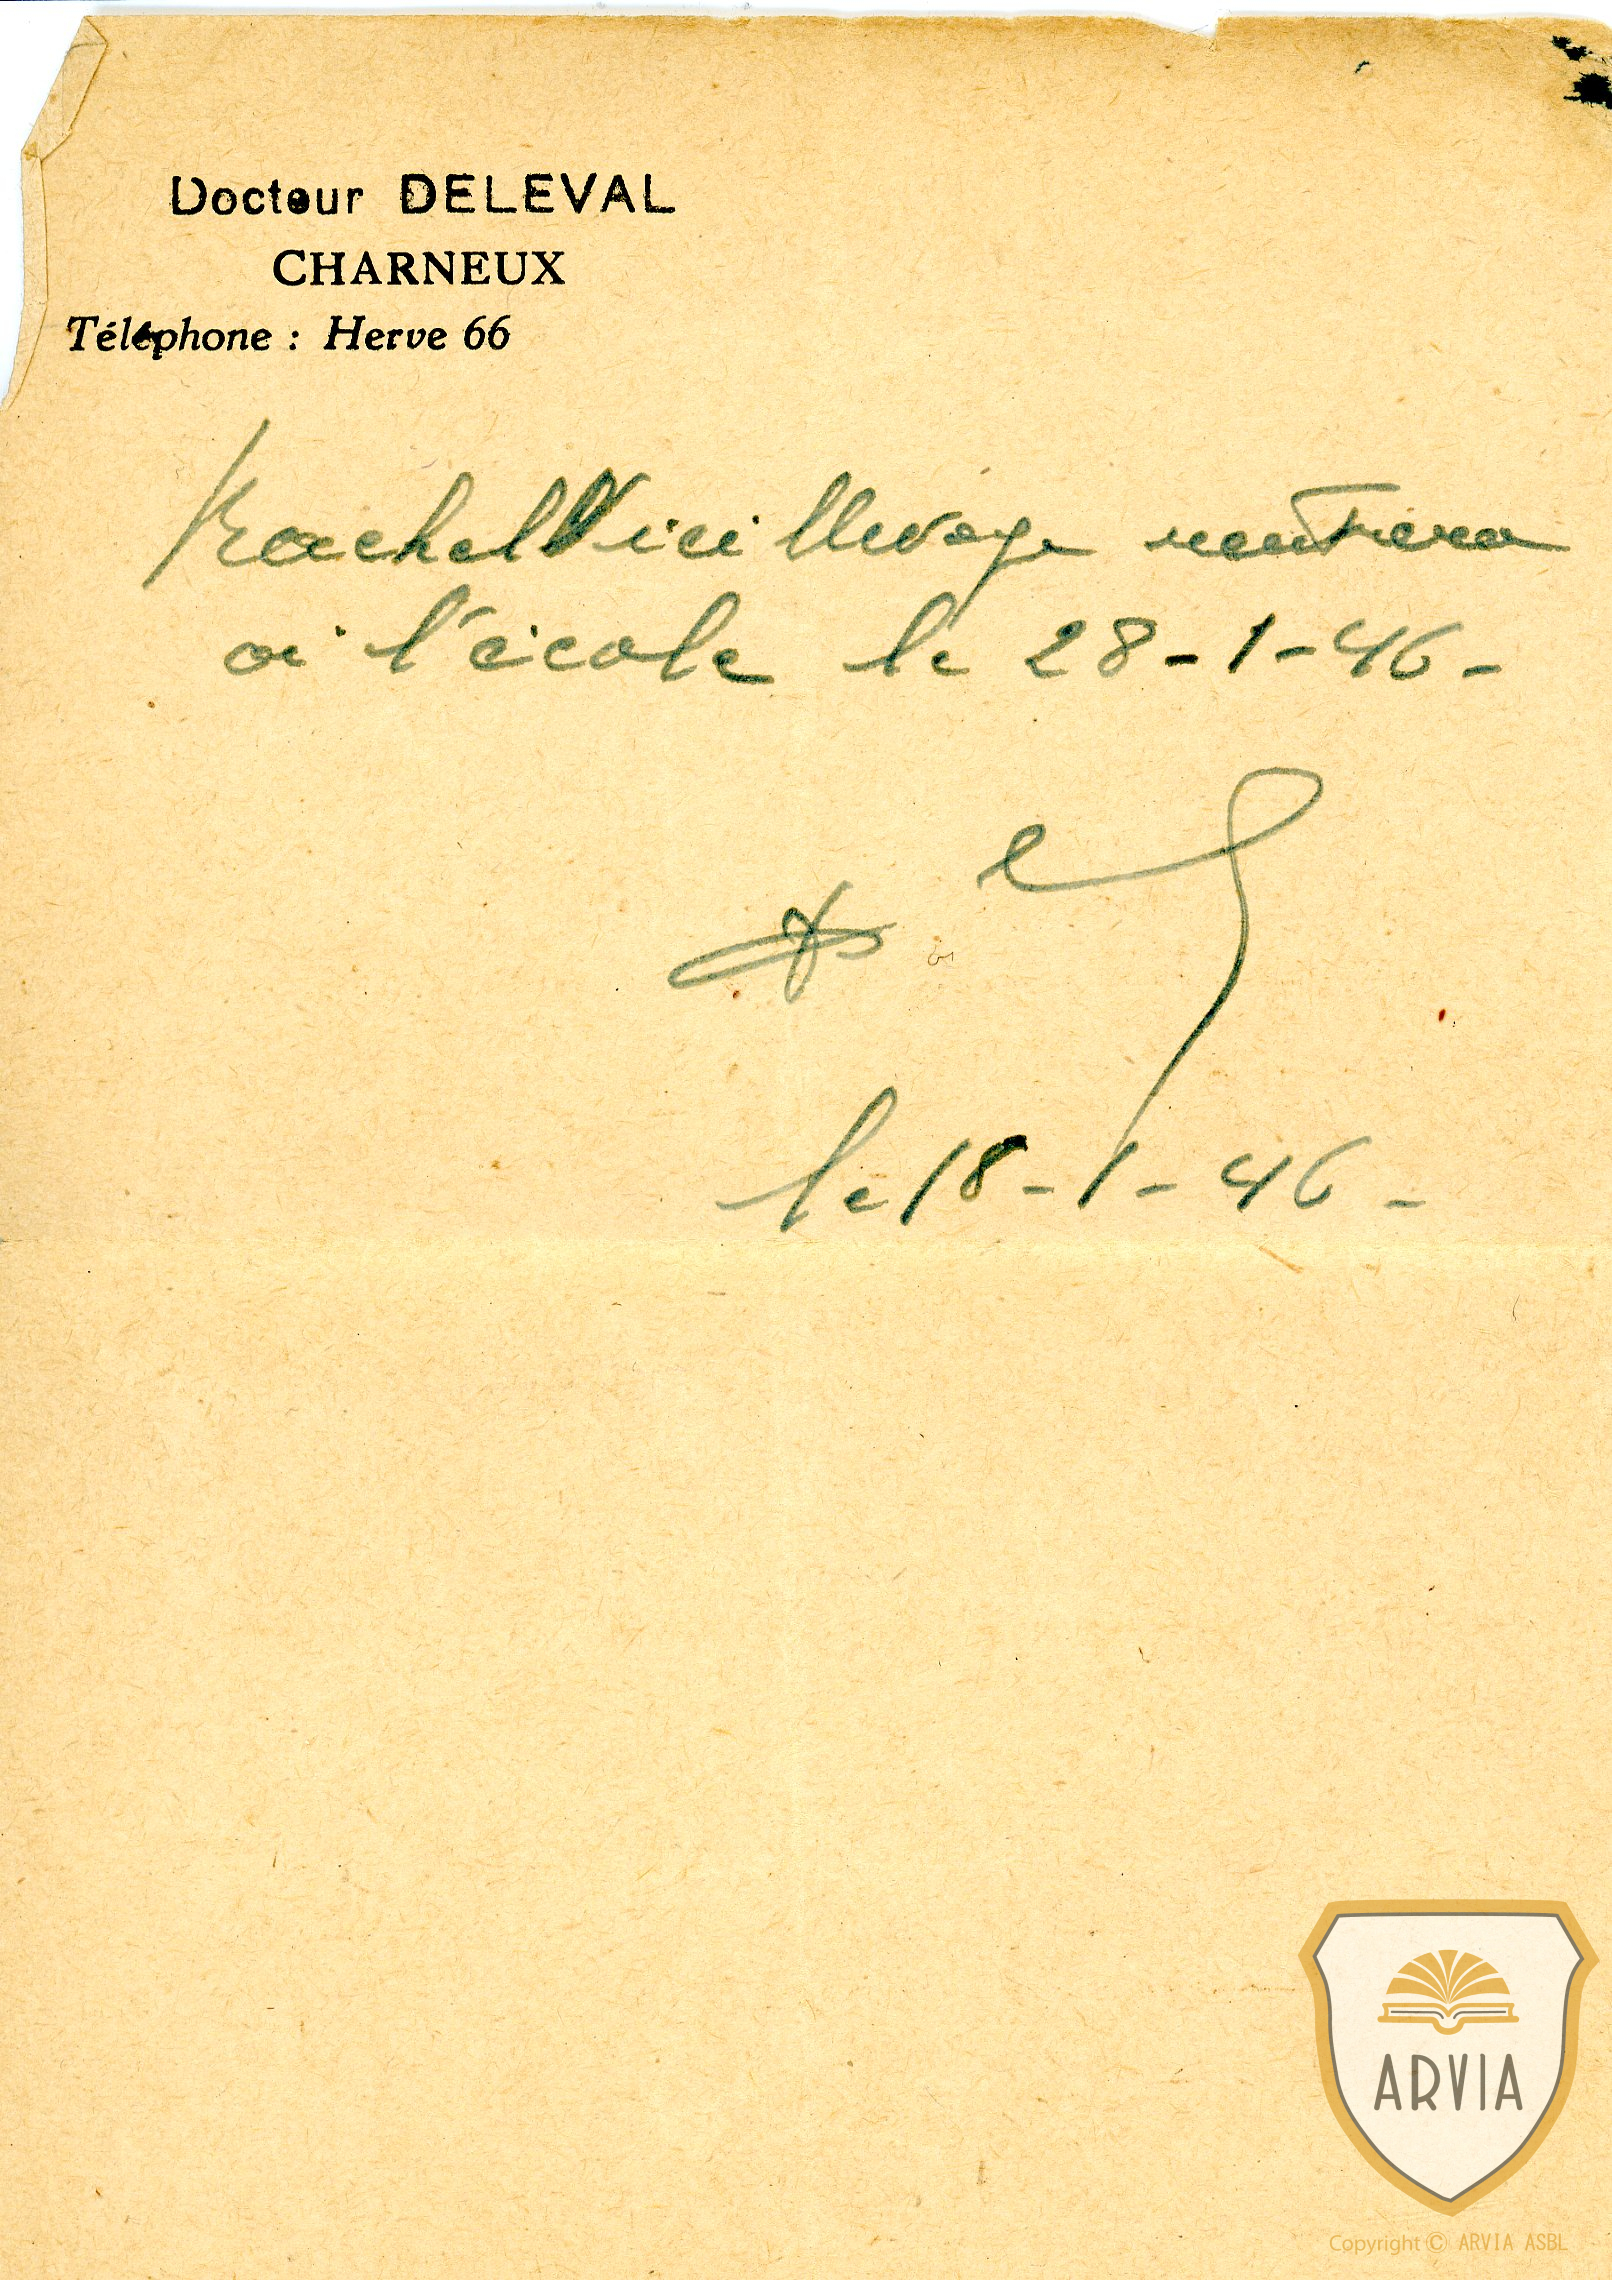 Docteur DELEVAL
CHARNEUX
Téléphone : Herve 66
Rachel Vieillevoye rentrera
à l'école le 28-1-46-
le 18-1-46-
ARVIA
Copyright © ARVIA ASBL